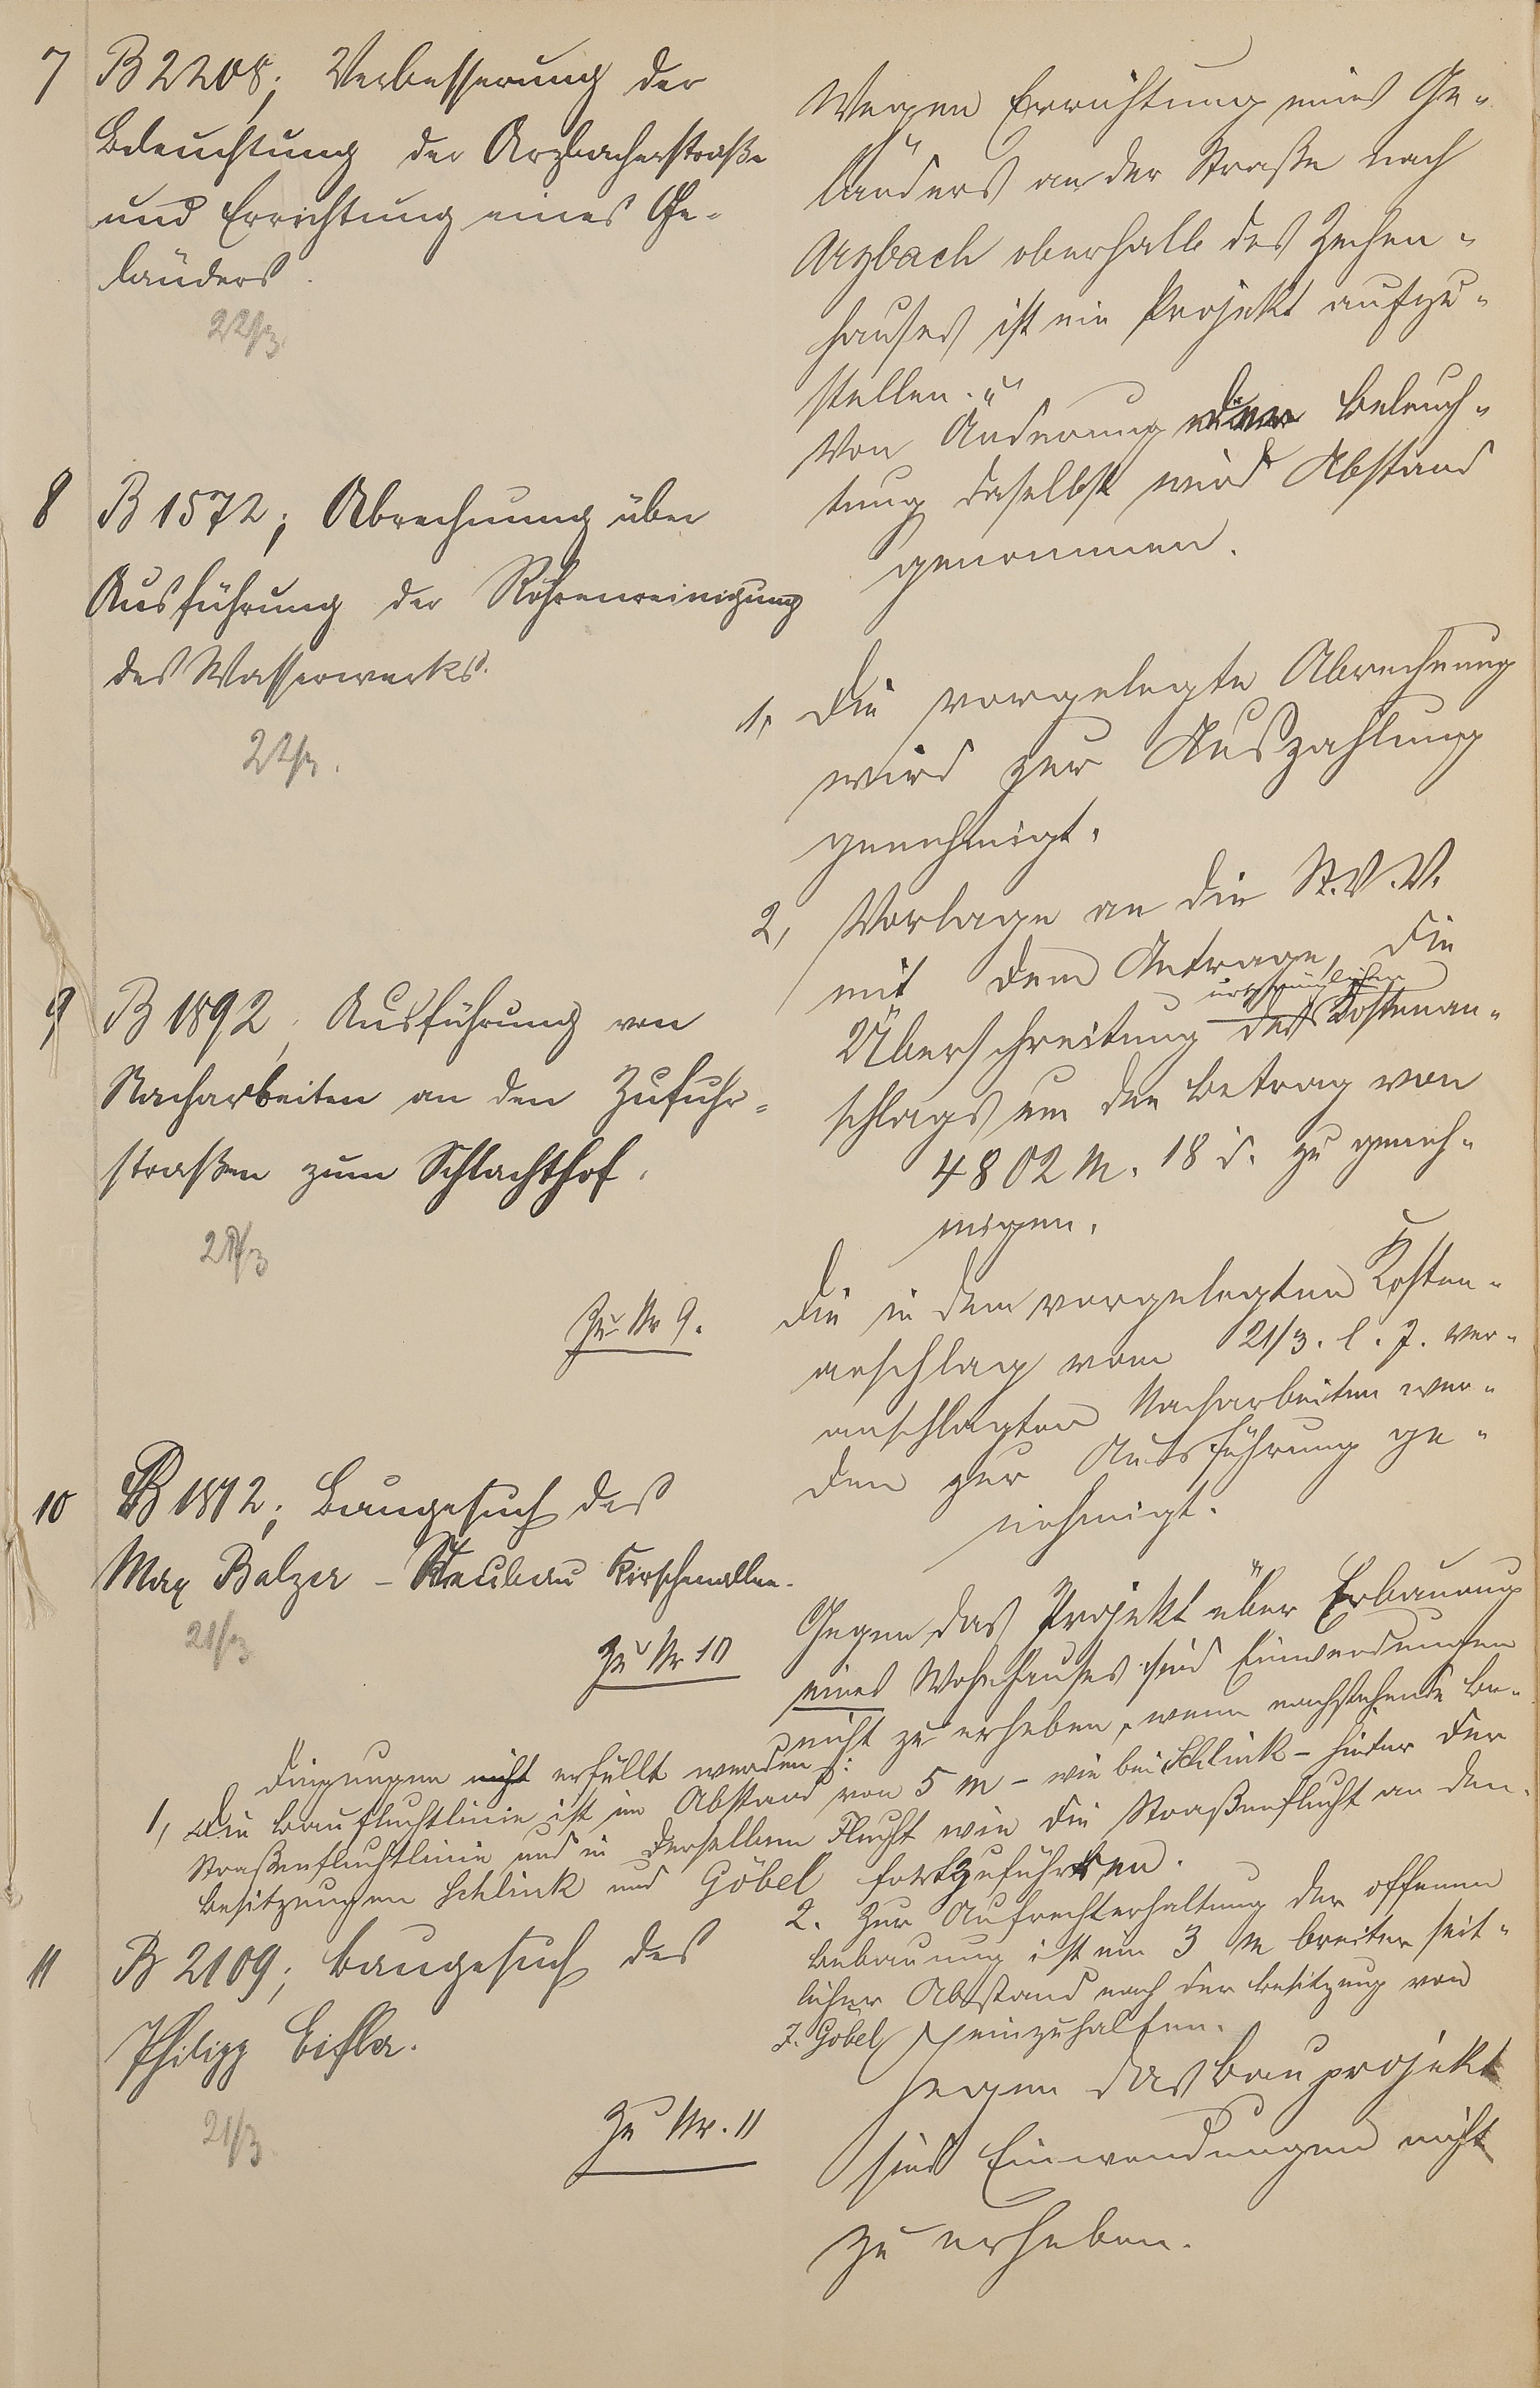 7 B 2208; Verbesserung der
Beleuchtung der Arzbacherstraße
und Errichtung eines Ge-
länders.
22/3.
Wegen Errichtung eines Ge-
länders an der Straße nach
Arzbach oberhalb des Zechen-
hauses ist ein Projekt aufzu-
stellen.
Von Änderung der Beleuch-
tung daselbst wird Abstand
genommen.
8 B 1572; Abrechnung über
Ausführung der Röhrenreinigung
des Wasserwerks.
22/3.
1, Die vorgelegte Abrechnung
wird zur Auszahlung
genehmigt.
2, Vorlage an die St.V.V.
mit dem Antrage, die
ursprünglichen
Überschreitung des Kostenan-
schlags um den Betrag von
4802 M. 18 d. zu geneh-
migen.
9 B 1892, Ausführung von
Nacharbeiten an den Zufuhr-
straßen zum Schlachthof.
21/3
Zu Nr 9.
Die in dem vorgelegten Kosten-
anschlag vom 21/3. l. J. ver-
anschlagten Nacharbeiten wer-
den zur Ausführung ge-
nehmigt.
10 B 1812; Baugesuch des
Max Balzer - Neubau Kirschenallee.
21/3
Zu Nr 10
Gegen das Projekt über Erbauung
eines Wohnhauses sind Einwendungen
nicht zu erheben, wenn nachstehende Be-
dingungen nicht erfüllt werden:
1, Die Baufluchtlinie ist im Abstand von 5 m - wie bei Schlink - hinter der
Straßenfluchtlinie und in derselben Flucht wie die Straßenflucht an den
Besitzungen Schlink und Göbel fortzuführen.
2. Zur Aufrechterhaltung der offenen
Bebauung ist ein 3 m breiter seit-
licher Abstand nach der Besitzung von
J. Göbel einzuhalten.
11 B 2109; Baugesuch des
Philipp Eifler.
21/3.
Zu Nr. 11
Gegen das Bauprojekt
sind Einwendungen nicht
zu erheben.